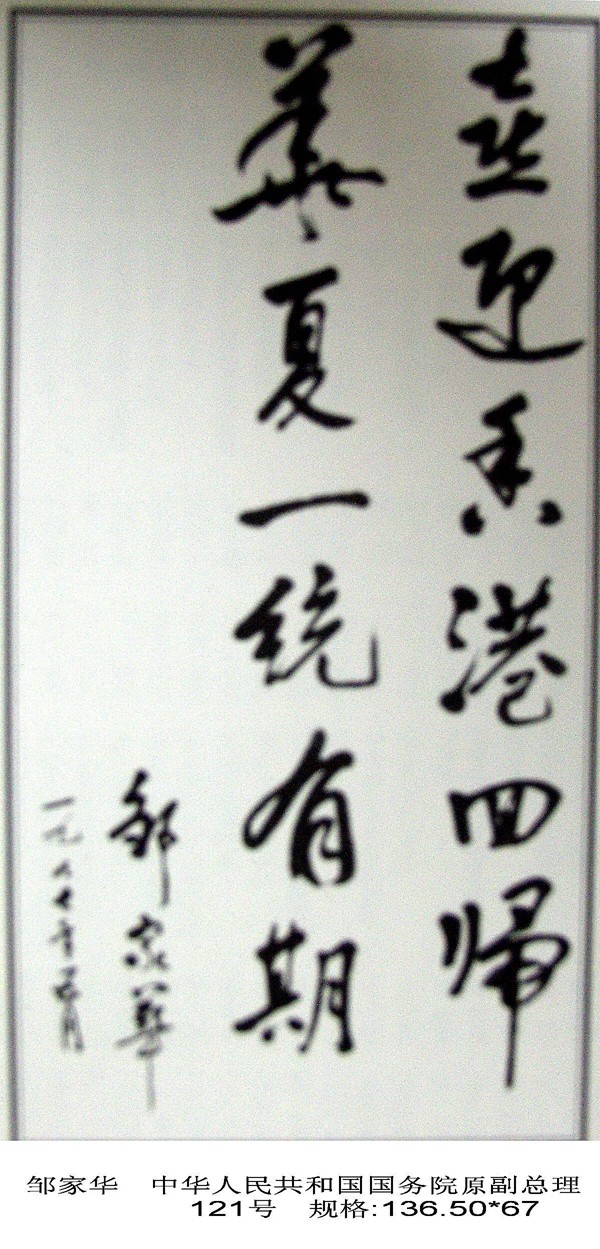 喜迎香港回归
華夏一统有期
邹家華
一九九七年 月
邹家华 中华人民共和国国务院原副总理
121号 规格:136.50*67